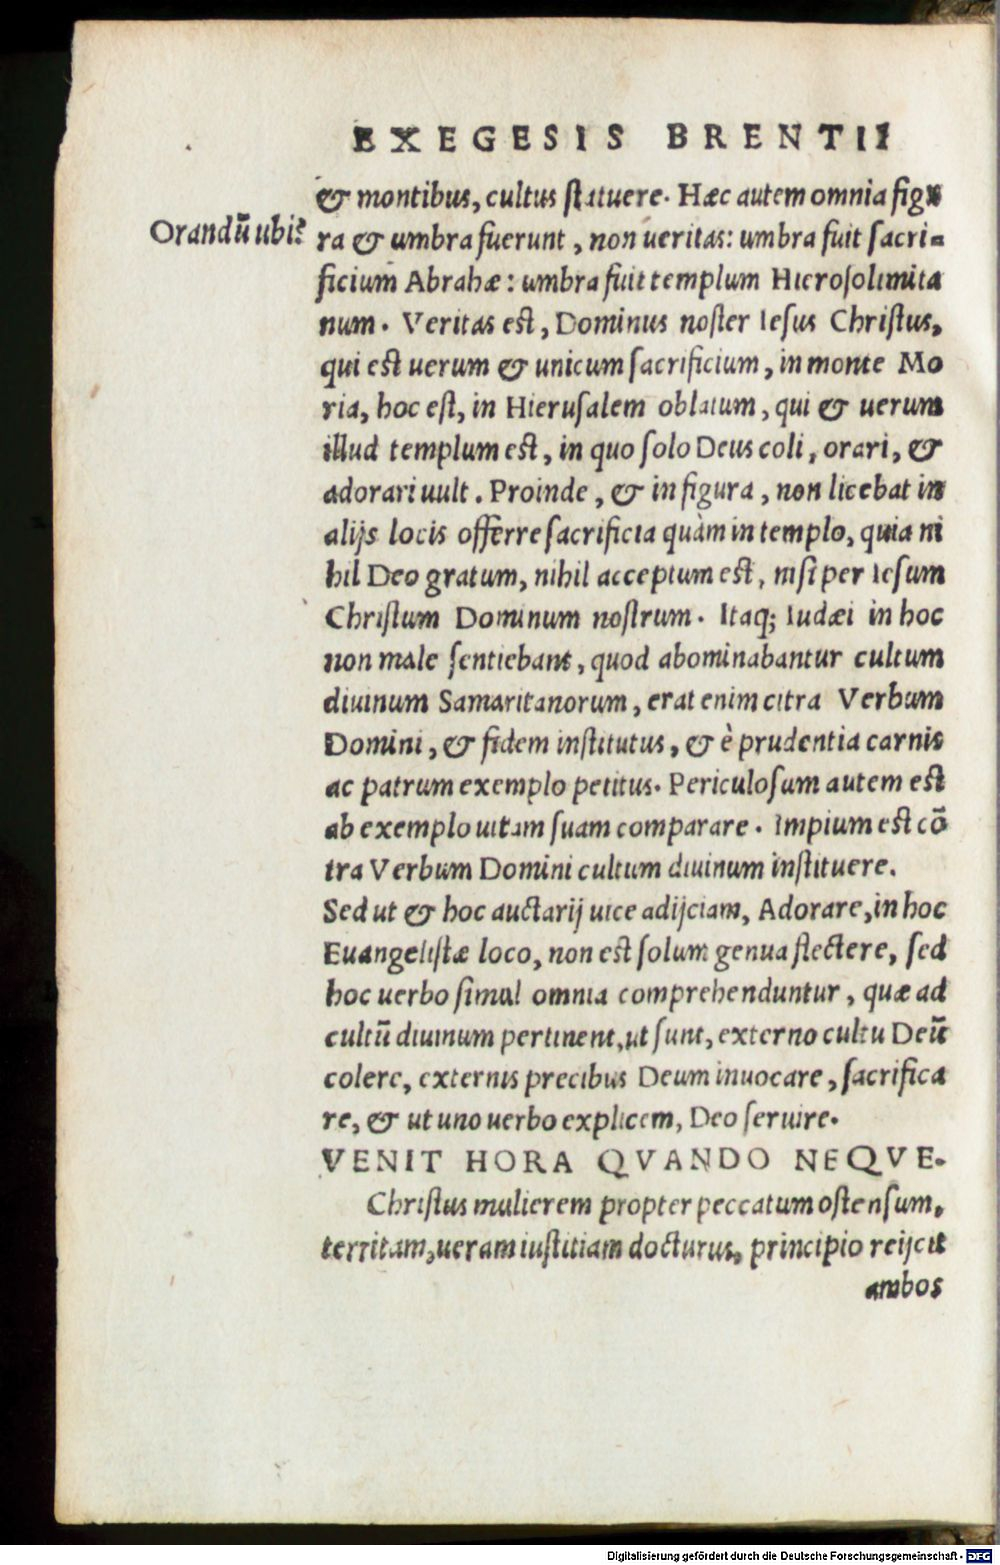 EXEGESIS BRENTII
& montibus, cultus statuere. Hæc autem omnia figu
Orandū ubi?
ra & umbra fuerunt, non ueritas: umbra fuit sacri-
ficium Abrahæ: umbra fuit templum Hierosolimita
num. Veritas est, Dominus noster Iesus Christus,
qui est uerum & unicum sacrificium, in monte Mo
ria, hoc est, in Hierusalem oblatum, qui & uerum
illud templum est, in quo solo Deus coli, orari, &
adorari uult. Proinde, & in figura, non licebat in
alijs locis offerre sacrificia quàm in templo, quia ni
hil Deo gratum, nihil acceptum est, nisi per Iesum
Christum Dominum nostrum. Itaq; Iudæi in hoc
non male sentiebant, quod abominabantur cultum
diuinum Samaritanorum, erat enim citra Verbum
Domini, & fidem institutus, & è prudentia carnis
ac patrum exemplo petitus. Periculosum autem est
ab exemplo uitam suam comparare. Impium est cō
tra Verbum Domini cultum diuinum instituere.
Sed ut & hoc auctarij uice adijciam, Adorare, in hoc
Euangelistæ loco, non est solum genua flectere, sed
hoc uerbo simul omnia comprehenduntur, quæ ad
cultū diuinum pertinent, ut sunt, externo cultu Deū
colere, externis precibus Deum inuocare, sacrifica
re, & ut uno uerbo explicem, Deo seruire.
VENIT HORA QVANDO NEQVE.
Christus mulierem propter peccatum ostensum,
territam, ueram iustitiam docturus, principio reijcit
ambos
Digitalisierung gefördert durch die Deutsche Forschungsgemeinschaft - DFG